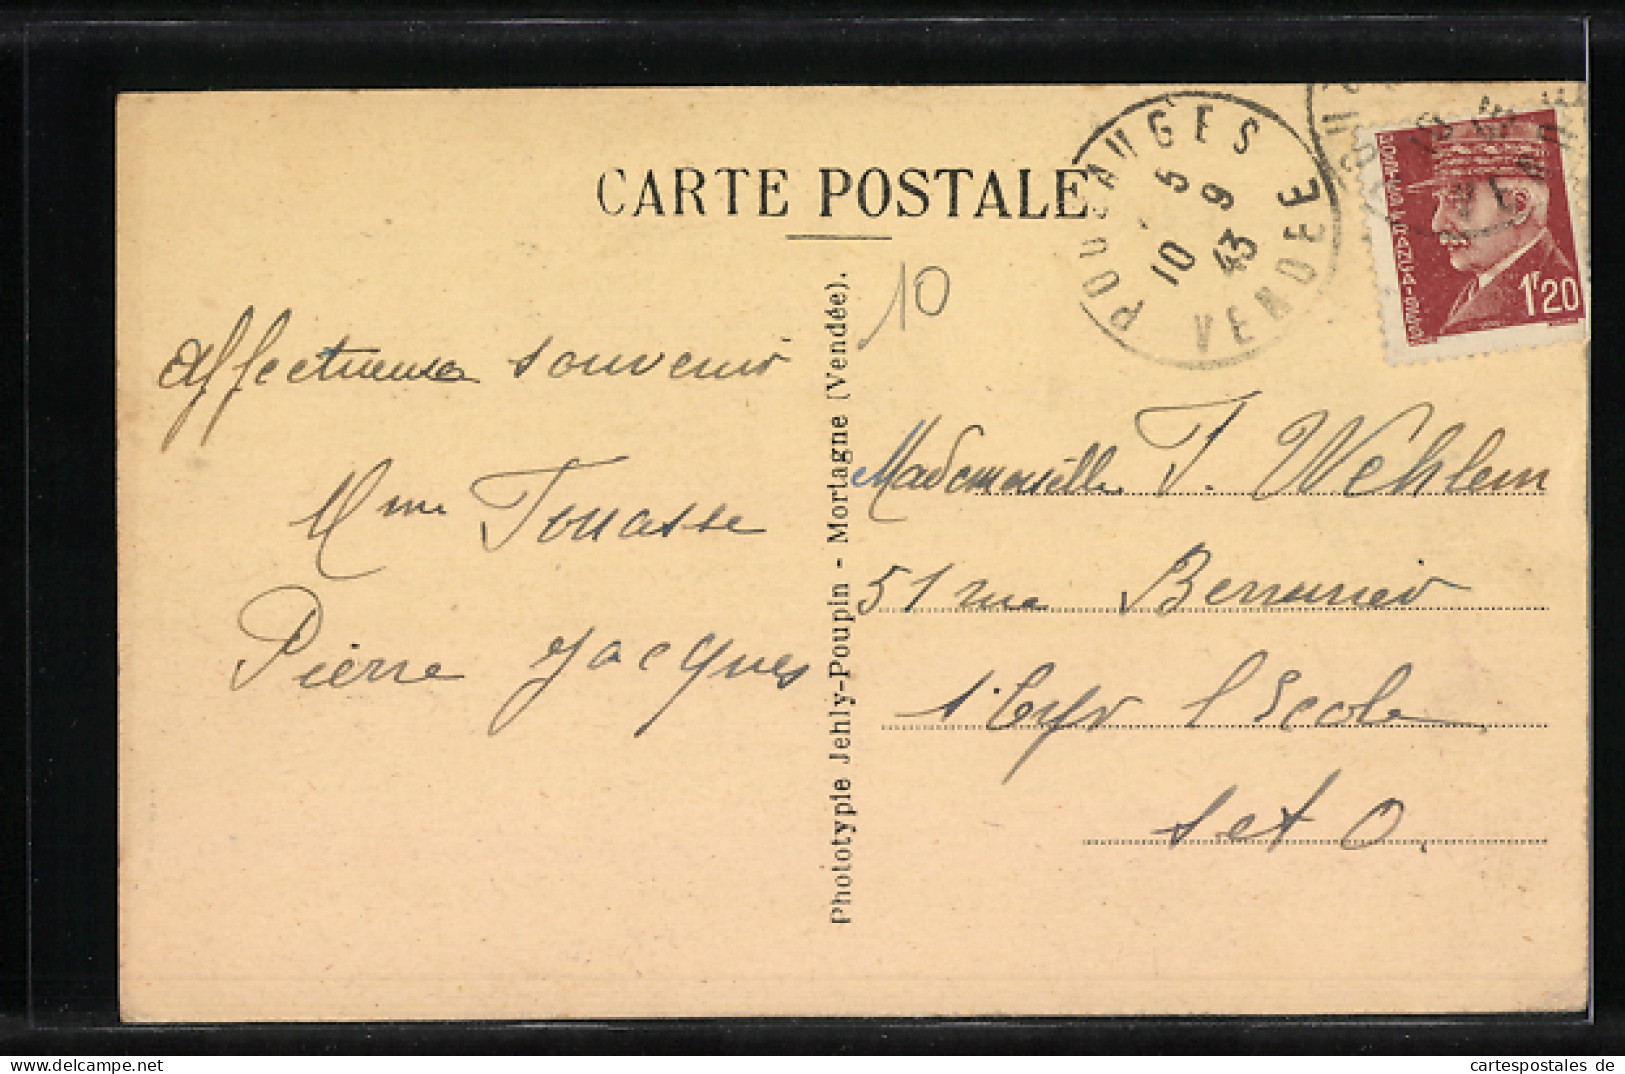 CARTE POSTALE
POUZAUGES
10 5
9
43
VENDEE
1F20
10
affectueux souvenir
Mme Touasse
Pierre Jacques
Phototypie Jehly-Poupin - Mortagne (Vendée).
Mademoiselle J. Wehlem
51 rue
St Cyr l'Ecole
S et O.
cartespostales de